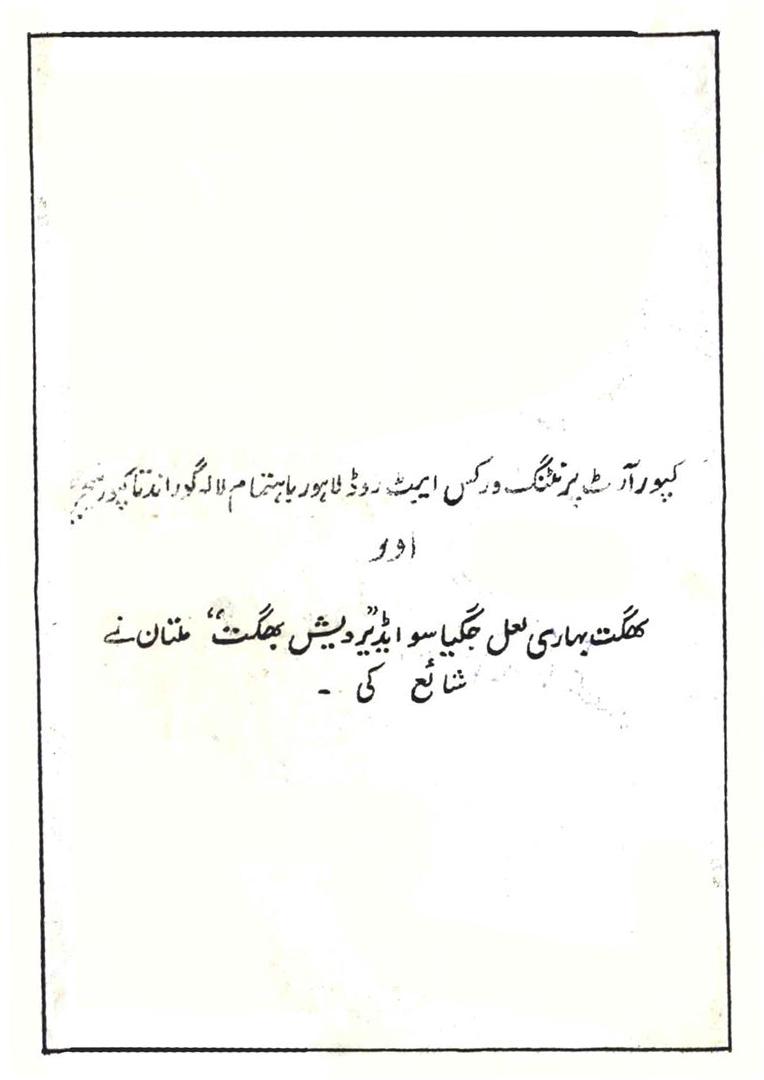 کپور آرٹ پرنٹنگ ورکس ایبٹ روڈ لاہور باہتمام لالہ گوراندتا کپور مینجر
اور
بھگت بہاری لعل جگیاسو ایڈیٹر "دیش بھگت" ملتان نے
شائع کی ۔